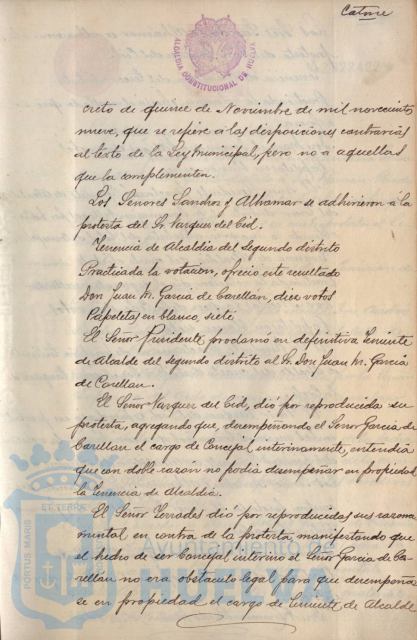 Catorce
ALCALDIA CONSTITUCIONAL DE HUELVA
creto de quince de Noviembre de mil novecientos
nueve, que se refiere á las disposiciones contrarias
al texto de la Ley Municipal, pero no á aquellas
que la complementen.
Los Señores Sanchez y Alhamar se adhirieron á la
protesta del Sr. Vazquez del Cid.
Tenencia de Alcaldia del segundo distrito
Practicada la votacion, ofreció este resultado
Don Juan M. Garcia de Carellán, diez votos
Papeletas en blanco, siete
El Señor Presidente proclamó en definitiva Teniente
de Alcalde del segundo distrito al Sr. Don Juan M. Garcia
de Carellan.
El Señor Vazquez del Cid, dió por reproducida su
protesta, agregando que, desempeñando el Señor Garcia de
Carellan el cargo de Concejal interinamente, entendia
que con doble razon no podia desempeñar en propiedad
la Tenencia de Alcaldia.
El Señor Terrades dió por reproducidas sus razona
miental en contra de la protesta, manifestando que
el hecho de ser Concejal interino el Señor Garcia de Ca-
rellán no era obstaculo legal para que desempeña
se en propiedad el cargo de Teniente de Alcalde
PORTUS MARIS ET TERRAE
HUELVA